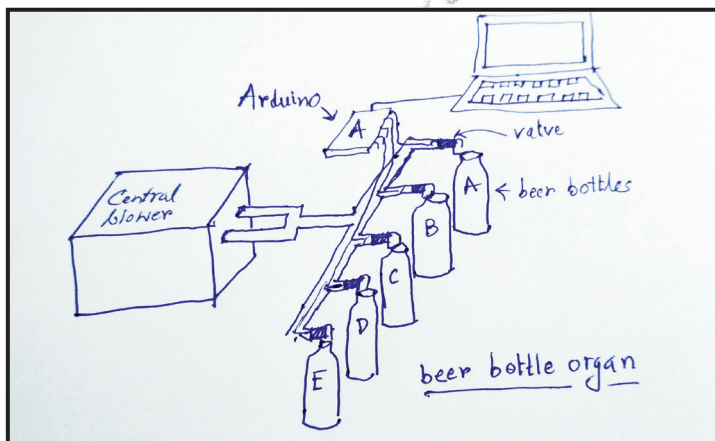 Arduino
A
valve
A
beer bottles
Central
blower
B
C
D
E
beer bottle organ